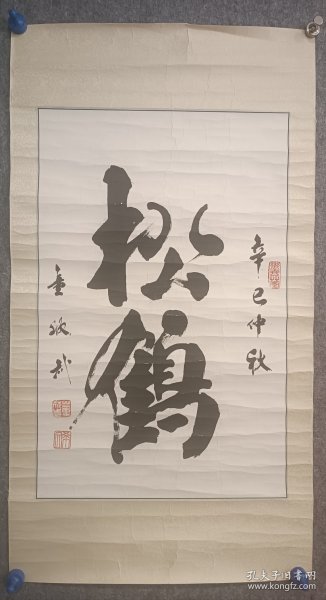 辛巳仲秋
松鹤
孔夫子旧书网
www.kongfz.com